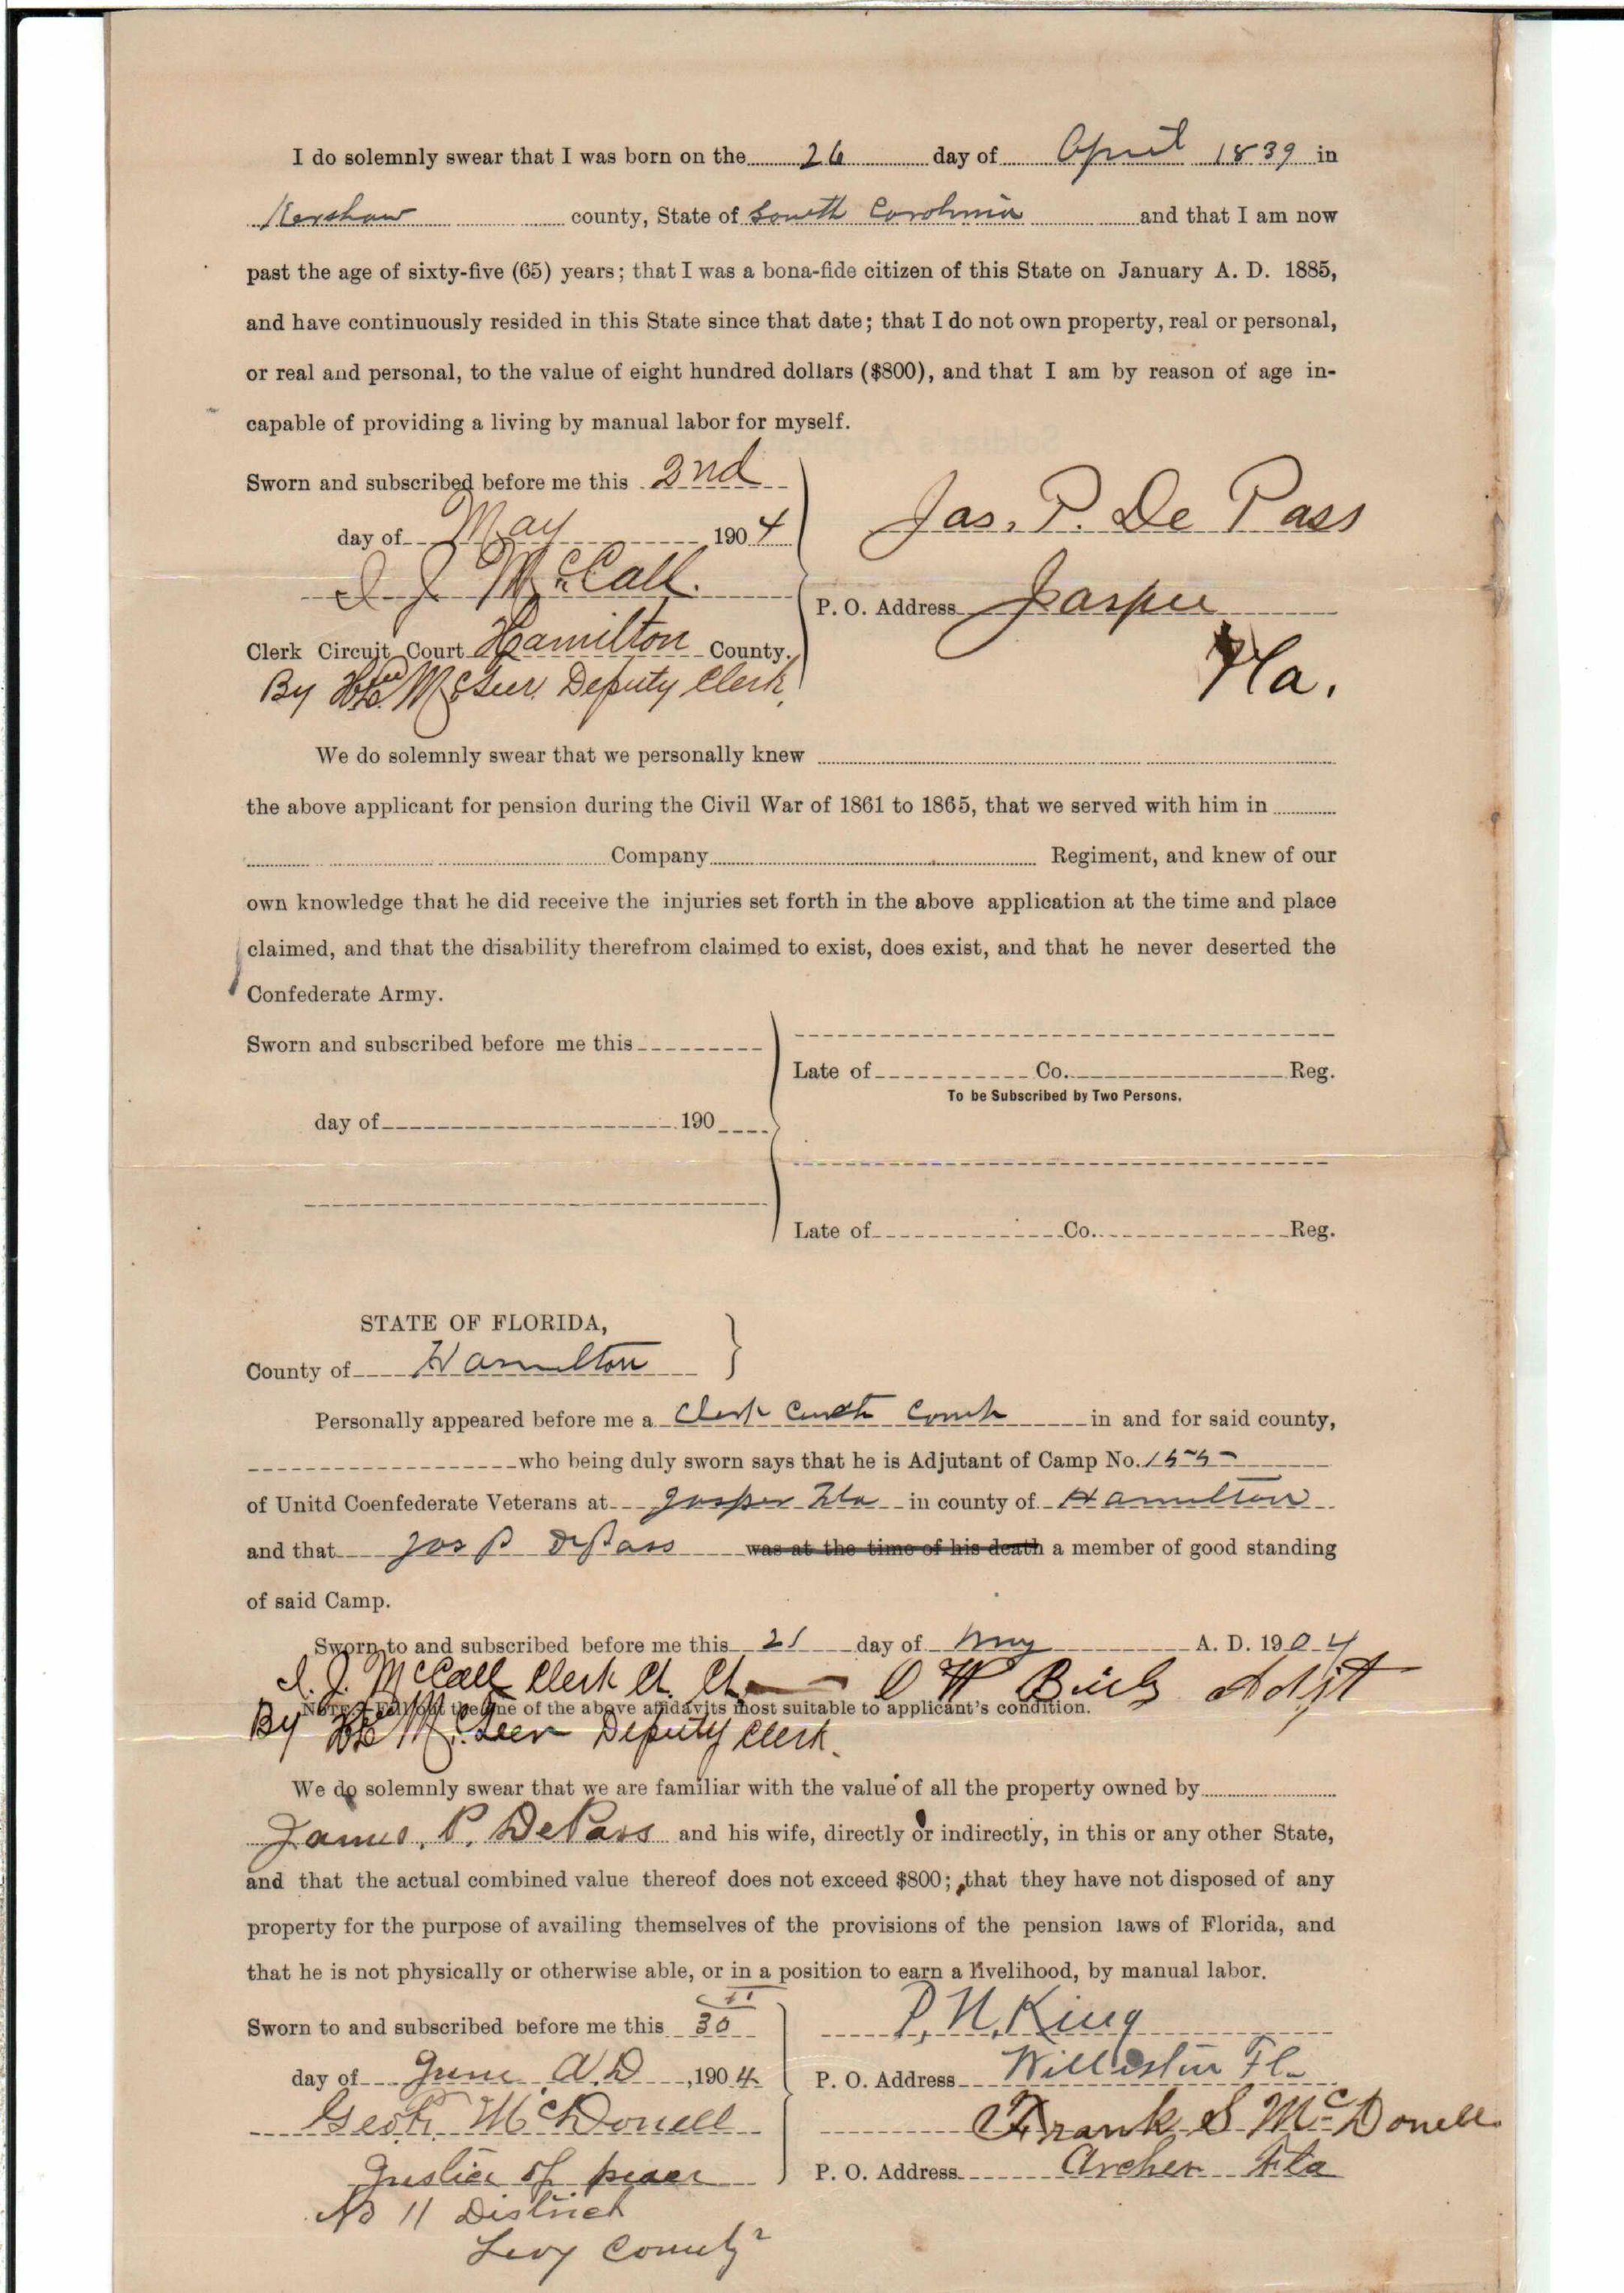 I do solemnly swear that I was born on the 26 day of April 1839 in
Kershaw county, State of South Carolinia and that I am now
past the age of sixty-five (65) years; that I was a bona-fide citizen of this State on January A. D. 1885,
and have continuously resided in this State since that date; that I do not own property, real or personal,
or real and personal, to the value of eight hundred dollars ($800), and that I am by reason of age in-
capable of providing a living by manual labor for myself.
Sworn and subscribed before me this 2nd
day of May 1904
Jas. P. De Pass
I J McCall.
P. O. Address Jasper
Clerk Circuit Court Hamilton County.
Fla.
By Deputy Clerk,
We do solemnly swear that we personally knew
the above applicant for pension during the Civil War of 1861 to 1865, that we served with him in
Company Regiment, and knew of our
own knowledge that he did receive the injuries set forth in the above application at the time and place
claimed, and that the disability therefrom claimed to exist, does exist, and that he never deserted the
Confederate Army.
Sworn and subscribed before me this
Late of Co. Reg.
To be Subscribed by Two Persons.
day of 190
Late of Co. Reg.
STATE OF FLORIDA,
County of Hamilton
Personally appeared before me a Clerk Circuit Court in and for said county,
who being duly sworn says that he is Adjutant of Camp No. 155
of Unitd Coenfederate Veterans at Jasper Fla in county of Hamilton
and that Jas P DePass was at the time of his death a member of good standing
of said Camp.
Sworn to and subscribed before me this 21 day of May A. D. 1904
I. J. McCall Clerk Ct. Ct. Adjt
NOTE.—Fill out the one of the above affidavits most suitable to applicant's condition.
By Deputy Clerk.
We do solemnly swear that we are familiar with the value of all the property owned by
James. P. DePass and his wife, directly or indirectly, in this or any other State,
and that the actual combined value thereof does not exceed $800; that they have not disposed of any
property for the purpose of availing themselves of the provisions of the pension laws of Florida, and
that he is not physically or otherwise able, or in a position to earn a livelihood, by manual labor.
Sworn to and subscribed before me this 30
P. N. King
day of June A.D, 1904
P. O. Address Williston Fl-
Geo. R. McDonell
Frank S McDonell.
Justice of peace
P. O. Address Archer Fla
No 11 District
Levy County